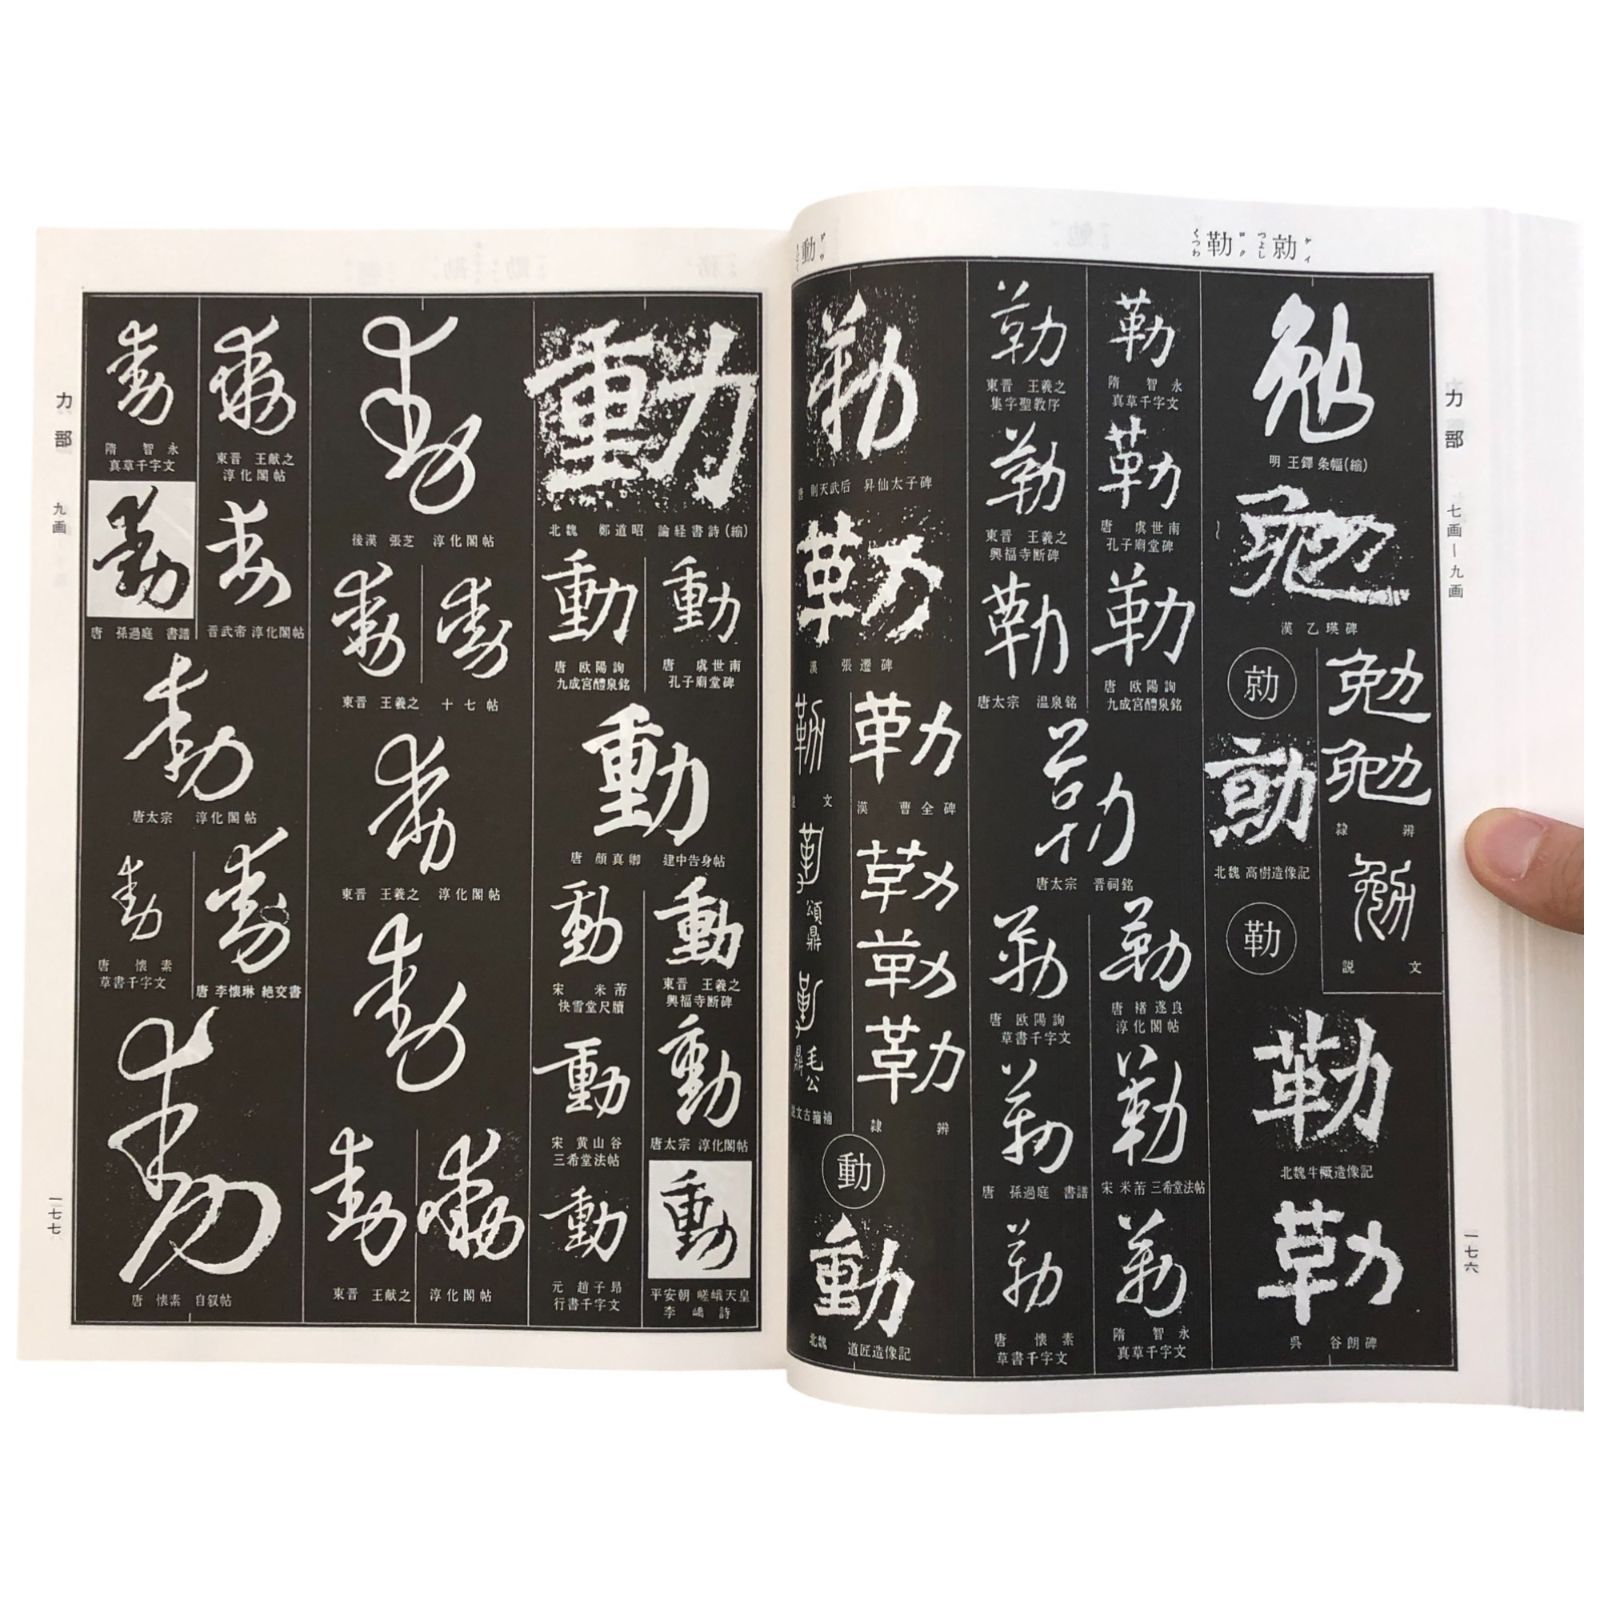 勍 ケイ つよし
勒 ロク くつわ
動
力部 七画—九画
一七六
勉
明 王鐸 条幅(縮)
勉
漢 乙瑛碑
勉
勉
隷辨
勉
説文
勍
勍
北魏 高樹造像記
勒
勒
北魏牛橛造像記
勒
呉 谷朗碑
勒
隋 智永
真草千字文
勒
唐 虞世南
孔子廟堂碑
勒
唐 欧陽詢
九成宮醴泉銘
勒
東晋 王羲之
集字聖教序
勒
東晋 王羲之
興福寺断碑
勒
唐太宗 温泉銘
勒
唐太宗 晋祠銘
勒
唐 褚遂良
淳化閣帖
勒
宋 米芾 三希堂法帖
勒
隋 智永
真草千字文
勒
唐 欧陽詢
草書千字文
勒
唐 孫過庭 書譜
勒
唐 懐素
草書千字文
勒
唐 則天武后 昇仙太子碑
勒
漢 張遷碑
勒
漢 曹全碑
勒
勒
勒
隷辨
勒
文
勒
頌鼎
勒
毛公鼎
説文古籀補
動
動
北魏 道匠造像記
動
北魏 鄭道昭 論経書詩(縮)
動
唐 虞世南
孔子廟堂碑
動
唐 欧陽詢
九成宮醴泉銘
動
唐 顔真卿 建中告身帖
動
東晋 王羲之
興福寺断碑
動
唐太宗 淳化閣帖
動
平安朝 嵯峨天皇
李嶠詩
動
宋 米芾
快雪堂尺牘
動
宋 黄山谷
三希堂法帖
動
元 趙子昂
行書千字文
動
後漢 張芝 淳化閣帖
動
動
東晋 王羲之 十七帖
動
東晋 王羲之 淳化閣帖
動
動
動
東晋 王献之 淳化閣帖
動
東晋 王献之
淳化閣帖
動
晋武帝 淳化閣帖
動
隋 智永
真草千字文
動
唐 孫過庭 書譜
動
唐太宗 淳化閣帖
動
唐 李懐琳 絶交書
動
唐 懐素
草書千字文
動
唐 懐素 自叙帖
力部 九画
一七七